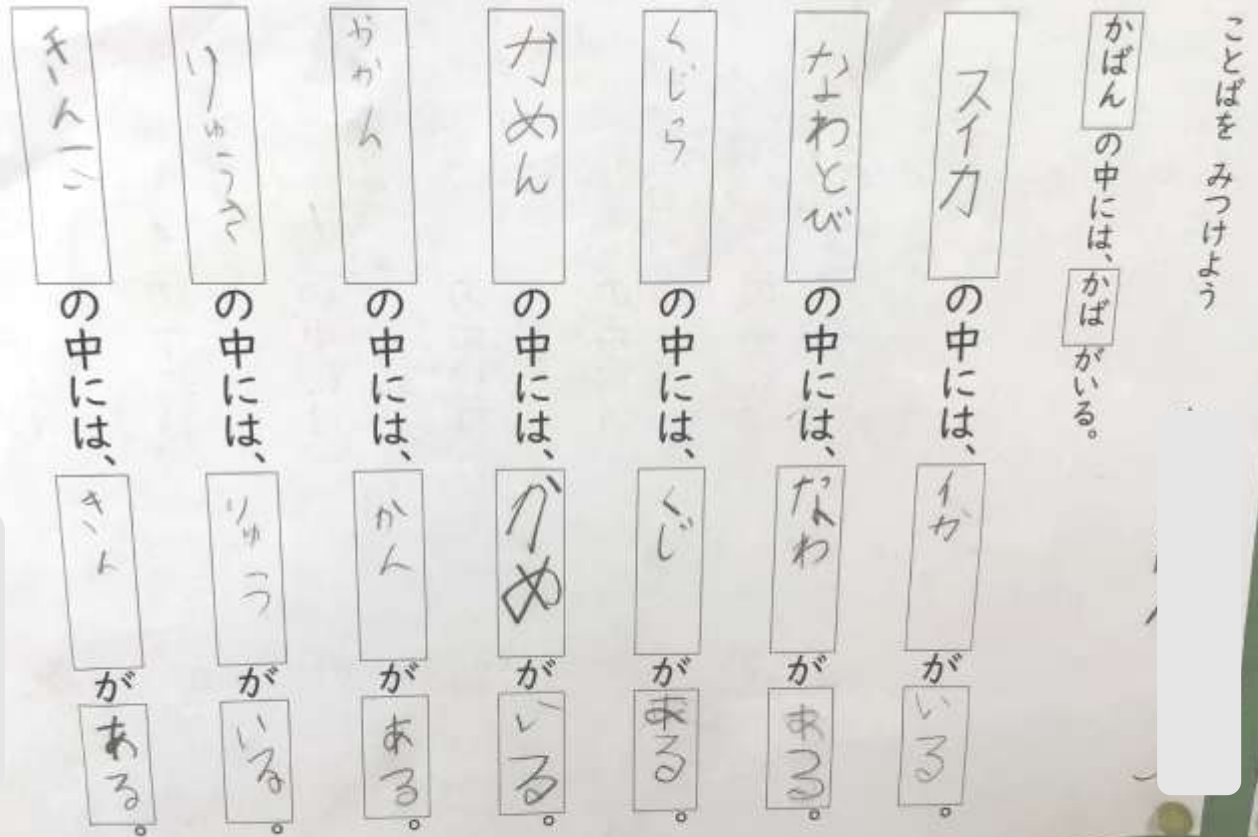 ことばを みつけよう
かばんの中には、かばがいる。
スイカの中には、イカがいる。
なわとびの中には、なわがある。
くじらの中には、くじがある。
かめんの中には、かめがいる。
やかんの中には、かんがある。
の中には、りゅうがいる。
きんこの中には、きんがある。